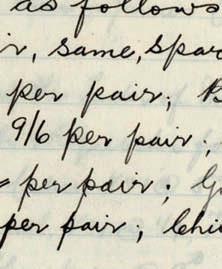 as follows
same, spar
per pair;
9/6 per pair;
= per pair; G
per pair; Chi